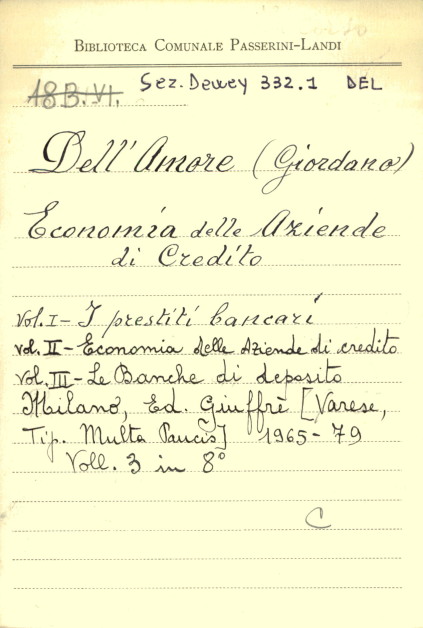 BIBLIOTECA COMUNALE PASSERINI-LANDI
18B.VI. Sez. Dewey 332.1 DEL
Dell'Amore (Giordano)
Economia delle Aziende
di Credito
Vol. I - I prestiti bancari
vol. II - Economia delle Aziende di credito
vol. III - Le Banche di deposito
Milano, Ed. Giuffrè [Varese,
Tip. Multa Paucis] 1965-79
Voll. 3 in 8°
C